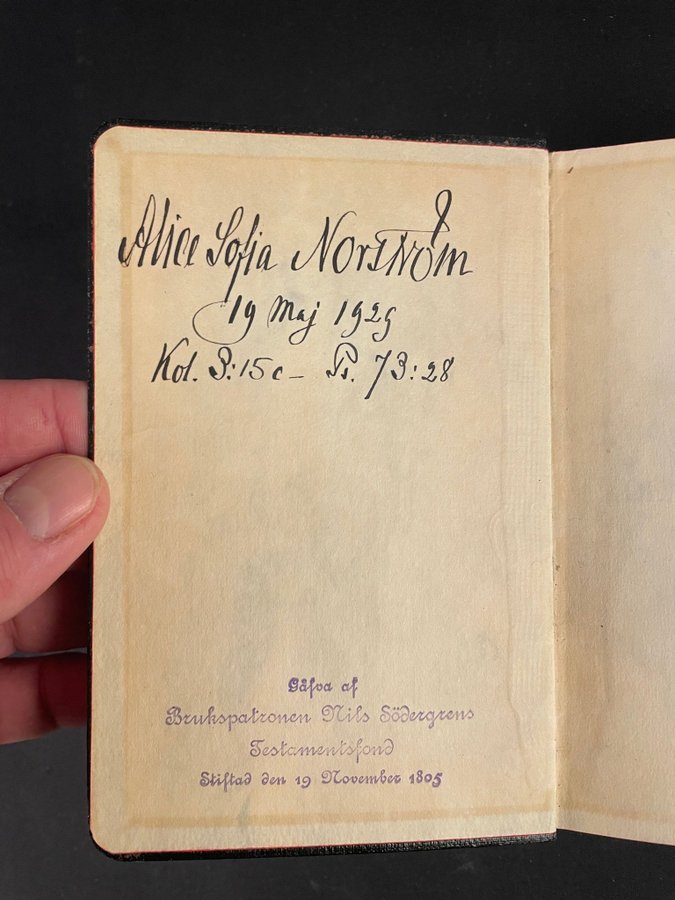 Alice Sofia Norström
19 Maj 1929
Kol. 3:15c - Ps. 73:28
Gåfva af
Brukspatronen Nils Södergrens
Testamentsfond
Stiftad den 19 November 1805